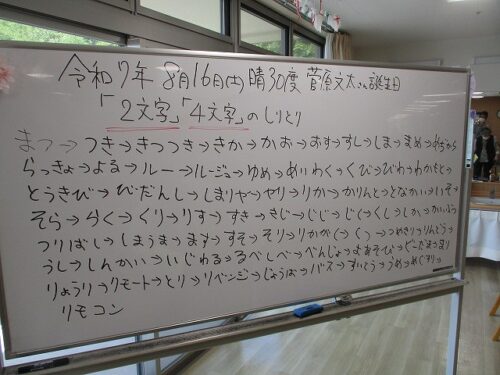 令和7年 8月16日(土) 晴 30度 菅原文太さん誕生日
「2文字」「4文字」のしりとり
まつ→つき→きつつき→きか→かお→おす→すし→しま→まめ→めぢから
らっきょ→よる→ルー→ルージュ→ゆめ→めいわく→くび→びわ→わかもと→
とうきび→び→だんし→しまりや→やり→りか→かりんと→となかい→いそ→
そら→らく→くり→りす→すき→きじ→じじ→じくつくし→しか→かいぶつ
つりばし→しまうま→ます→すそ→そり→りかがく→くつ→つめきり→りんどう→
うし→しんかい→いじわる→るべしべ→べんじょ→よあそび→ビーだま→まり
りょうり→リモート→とり→リベンジ→じょうば→バス→すいとう→うめ→めぐすり→
リモコン